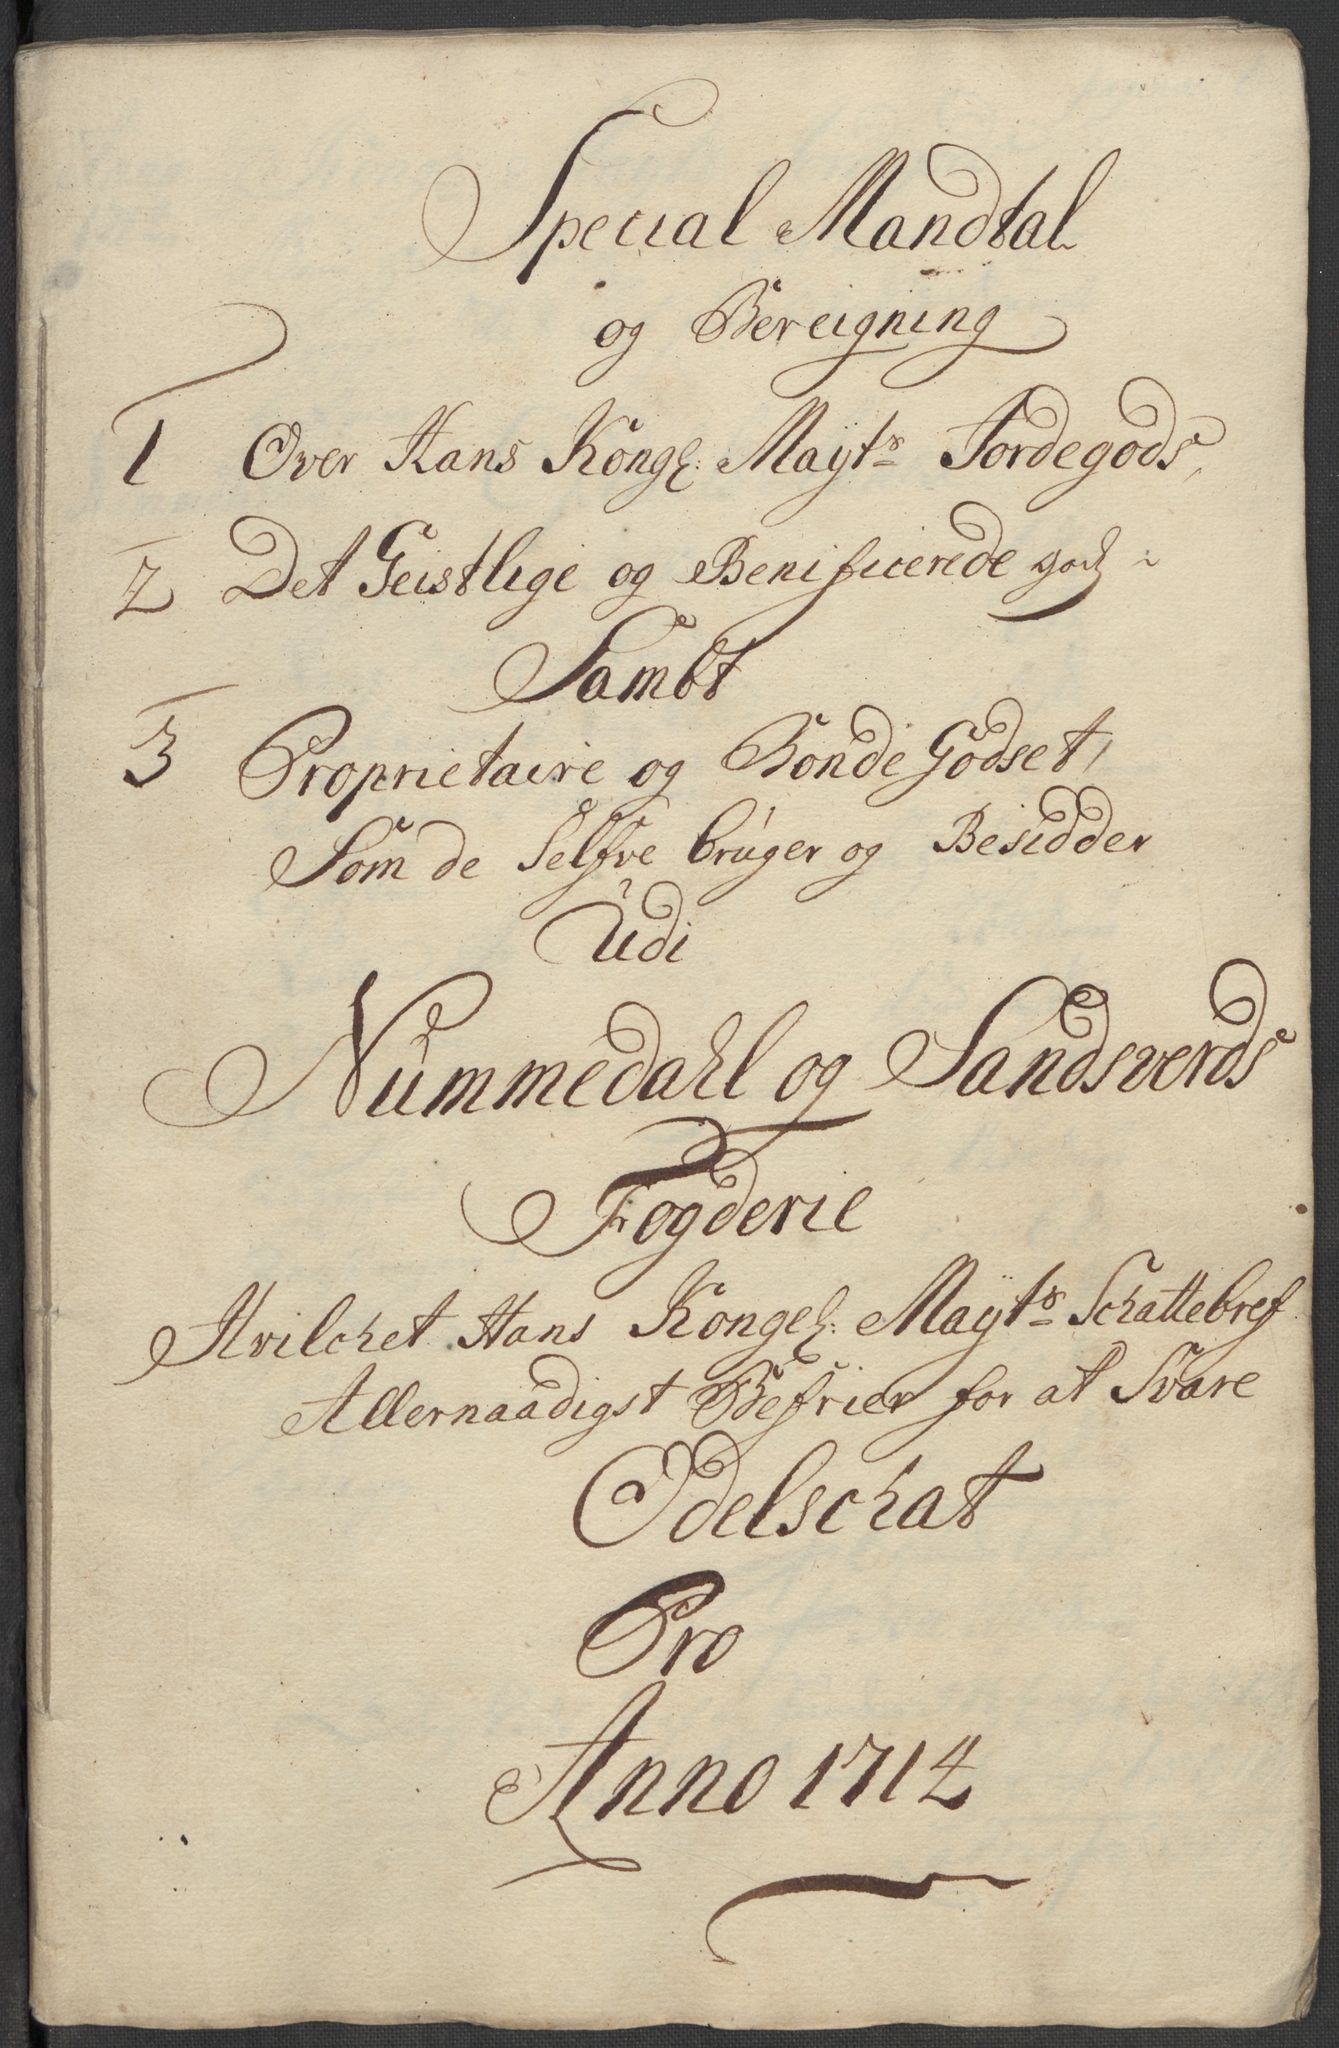 Special Mandtal
og Bereigning
1 Over Hans Kongl: Mayts Jordegods,
2 Det Geistlige og Benificerede godz
Sambt
3 Proprietaire og Bonde Godset,
Som de Selfve bruger og Besidder
Udi
Nummedahl og Sandsverds
Fogderie
Hvilchet Hans Kongel: Mayts Schattebref
Allernaadigst Befrier for at Svare
Odelschat
Pro
Anno 1714